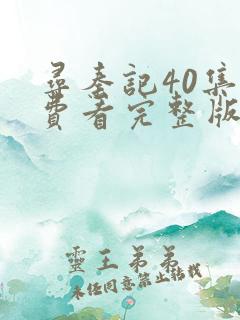 尋秦記40集
費看完整版
靈王弟弟
未经同意禁止转载